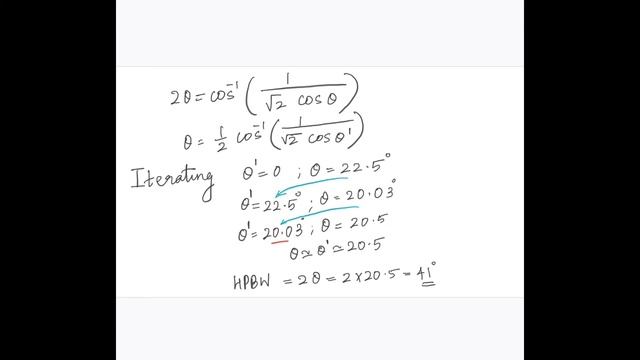 2θ = cos⁻¹ ( 1 / √2 cos θ )
θ = 1/2 cos⁻¹ ( 1 / √2 cos θ' )
Iterating θ' = 0 ; θ = 22.5°
θ' = 22.5° ; θ = 20.03°
θ' = 20.03° ; θ = 20.5
θ ≃ θ' ≃ 20.5
HPBW = 2θ = 2 × 20.5 = 41°